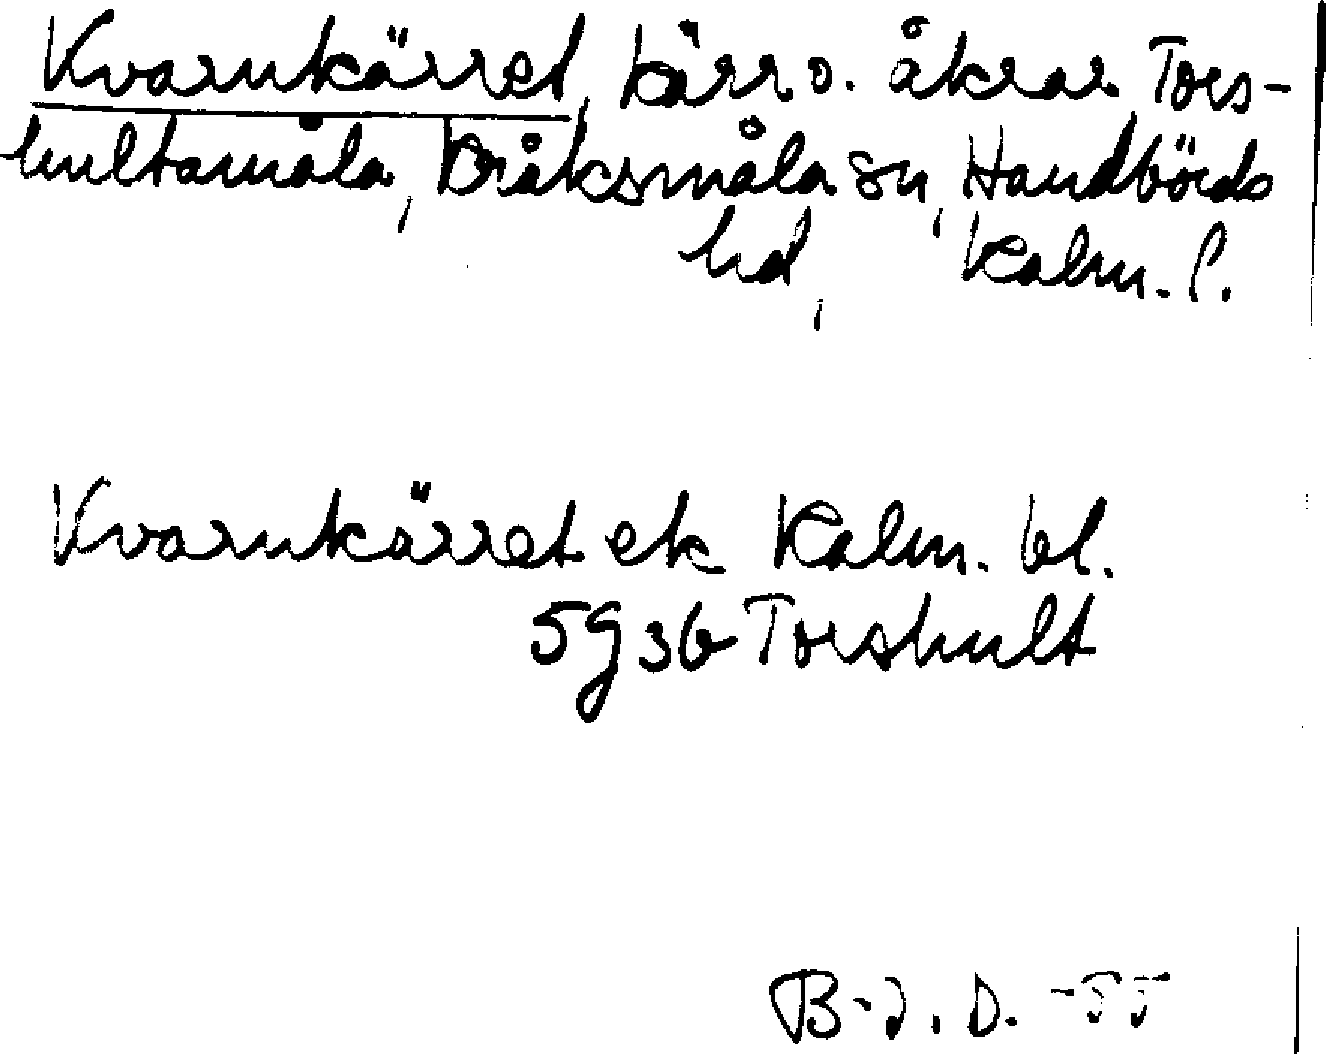 Kvarnkärret, kärr o. åkrar Tors-
hultamåla, Kråksmåla sn, Handbörds
hd, Kalm. l.
Kvarnkärret ek Kalm. bl.
5g36 Torshult
B-J. D. -55